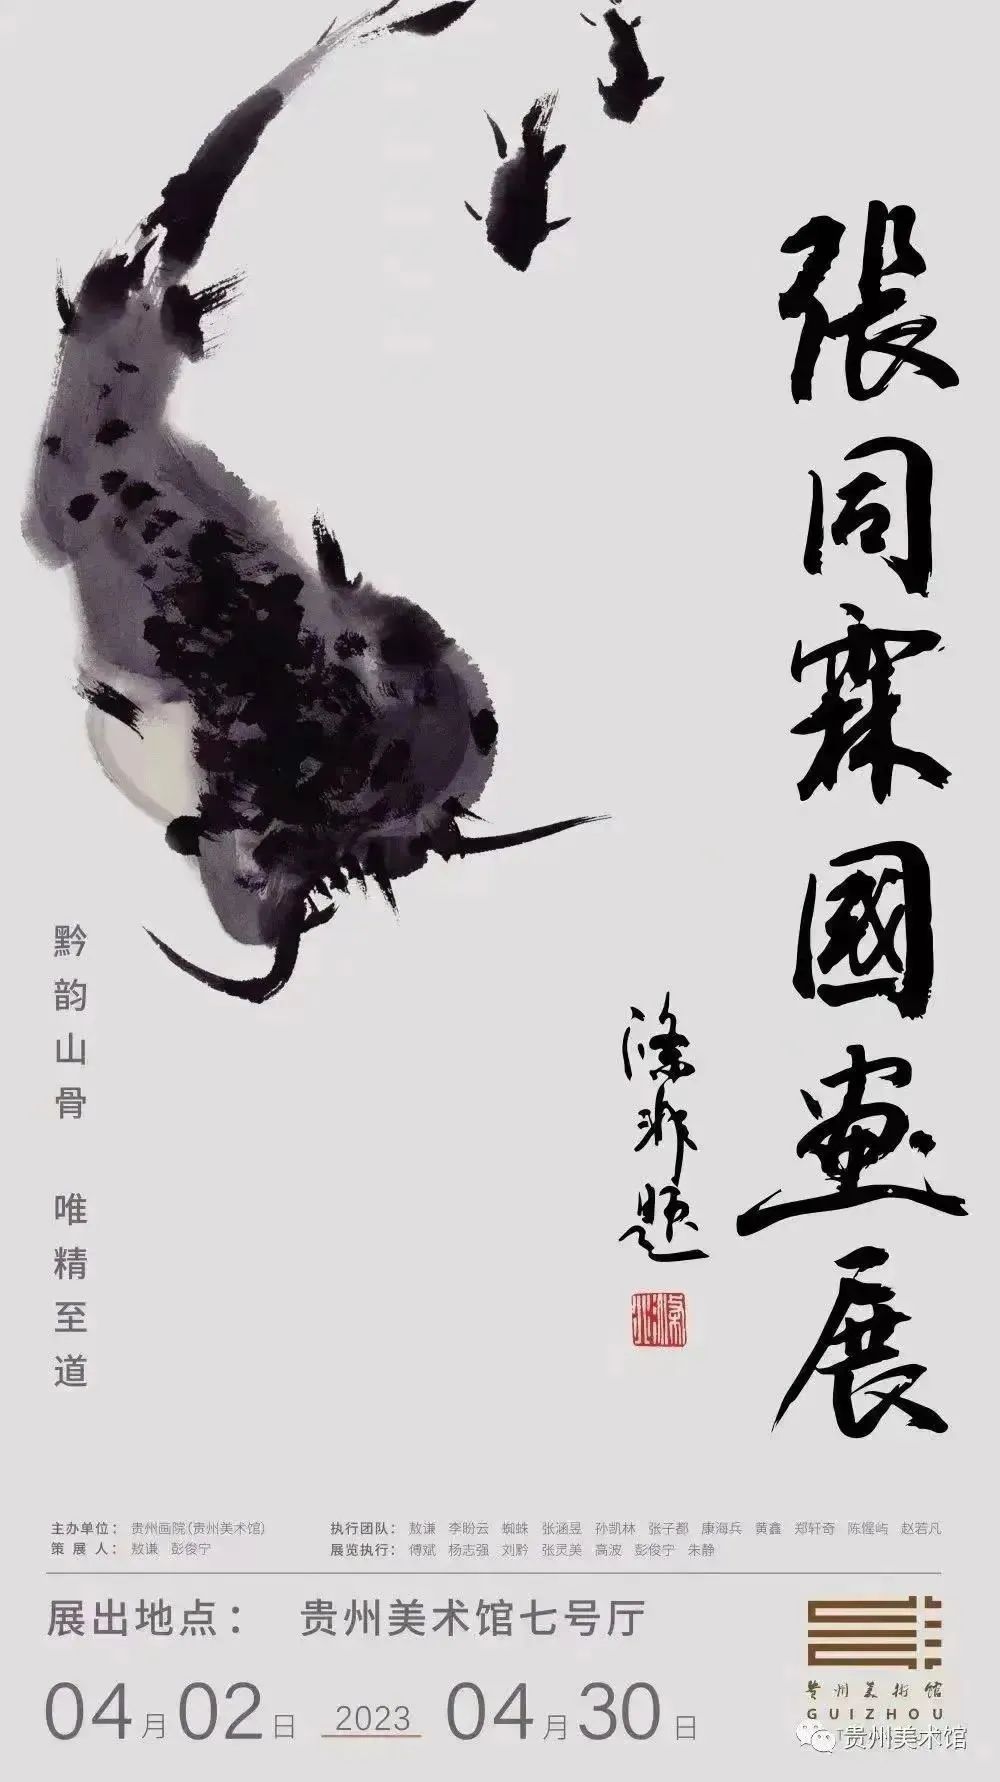 張同霖國畫展
滌非题
黔韵山骨 唯精至道
主办单位： 贵州画院(贵州美术馆)
策展人： 敖谦 彭俊宁
执行团队： 敖谦 李盼云 蜘蛛 张涵昱 孙凯林 张子都 康海兵 黄鑫 郑轩奇 陈惺屿 赵若凡
展览执行： 傅斌 杨志强 刘黔 张灵美 高波 彭俊宁 朱静
展出地点： 贵州美术馆七号厅
04月02日 2023 04月30日
贵州美術馆
GUIZHOU
贵州美术馆